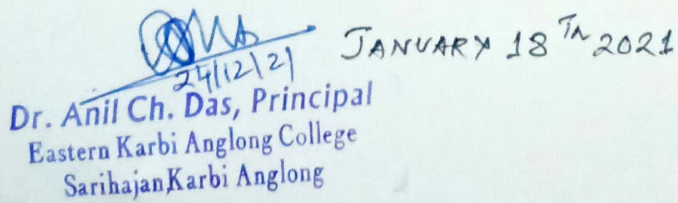 JANUARY 18TH 2021
24/12/21
Dr. Anil Ch. Das, Principal
Eastern Karbi Anglong College
Sarihajan, Karbi Anglong